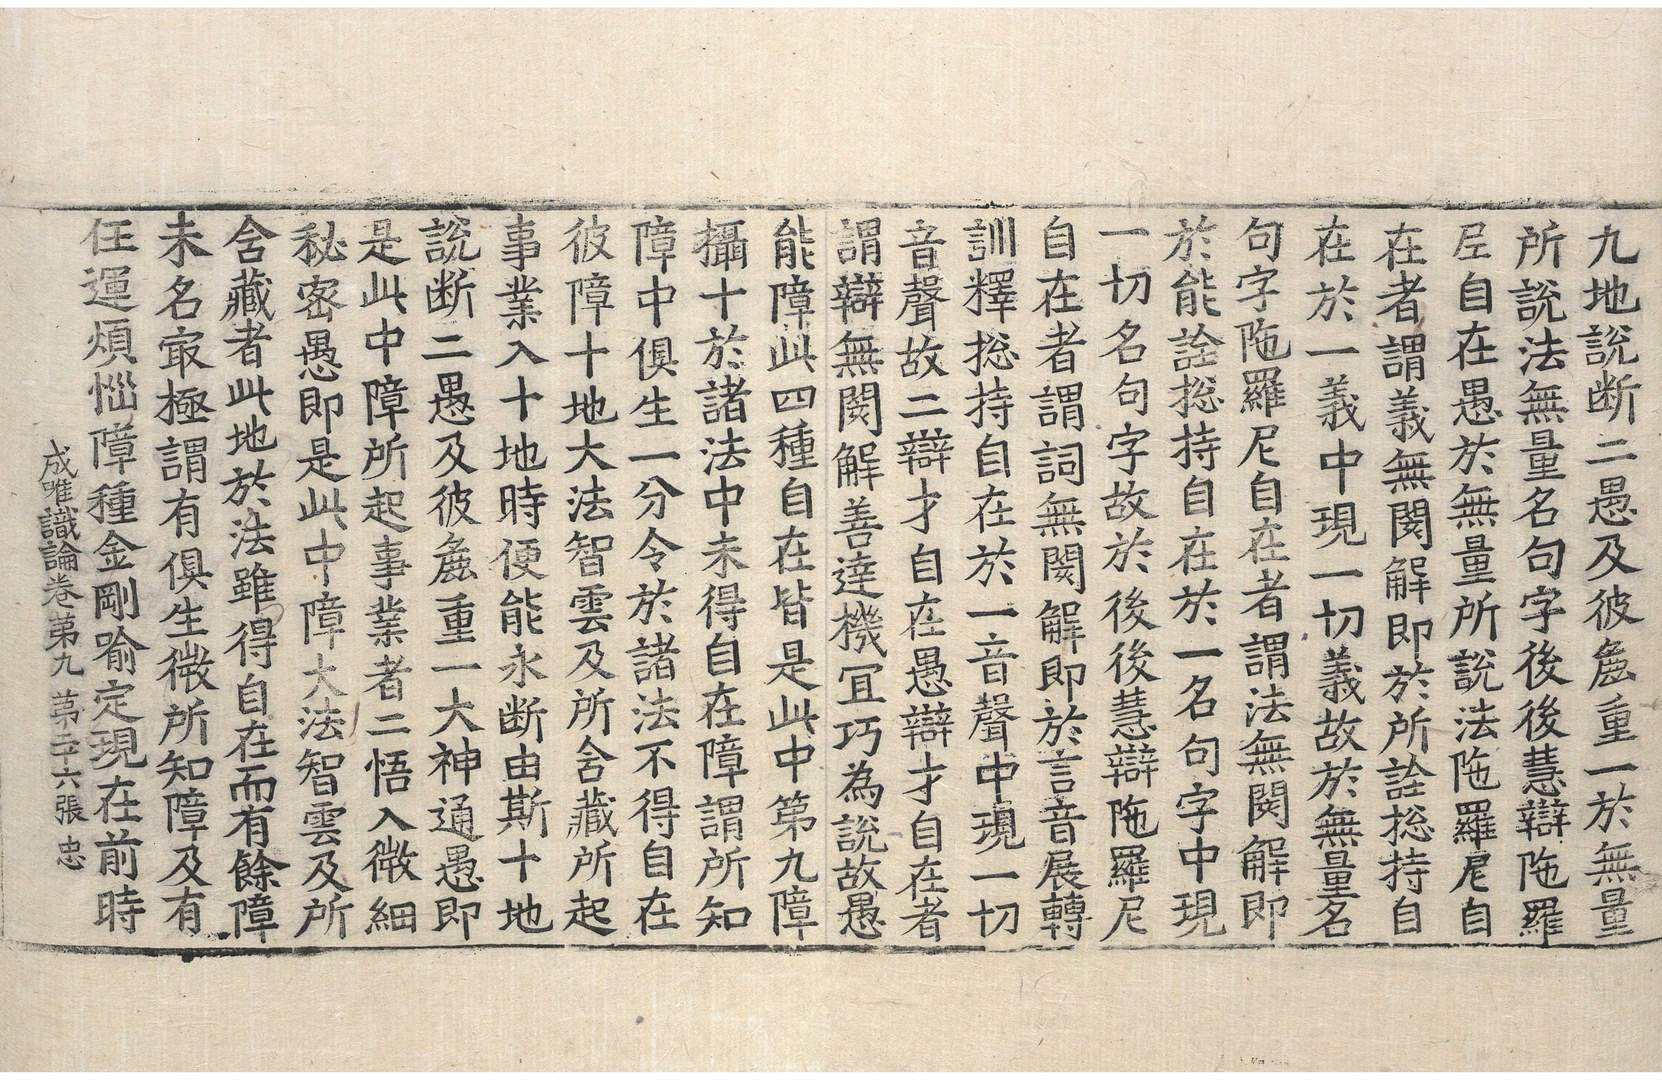 九地說断二愚及彼麁重一於無量
所說法無量名句字後後慧辯陁羅
𡰱自在愚於無量所說法陁羅尼自
在者謂義無閡解即於所詮捴持自
在於一義中現一切義故於無量名
句字陁羅尼自在者謂法無閡解即
於能詮捴持自在於一名句字中現
一切名句字故於後後慧辯陁羅尼
自在者謂詞無閡解即於言音展轉
訓釋捴持自在於一音聲中現一切
音聲故二辯才自在愚辯才自在者
謂辯無閡解善達機冝巧為說故愚
能障此四種自在皆是此中第九障
攝十於諸法中未得自在障謂所知
障中俱生一分令於諸法不得自在
彼障十地大法智雲及所含藏所起
事業入十地時便能永断由斯十地
說断二愚及彼麁重一大神通愚即
是此中障所起事業者二悟入微細
秘密愚即是此中障大法智雲及所
含藏者此地於法雖得自在而有餘障
未名冣極謂有俱生微所知障及有
任運煩惱障種金剛喻定現在前時
成唯識論卷第九 第二十六張 忠